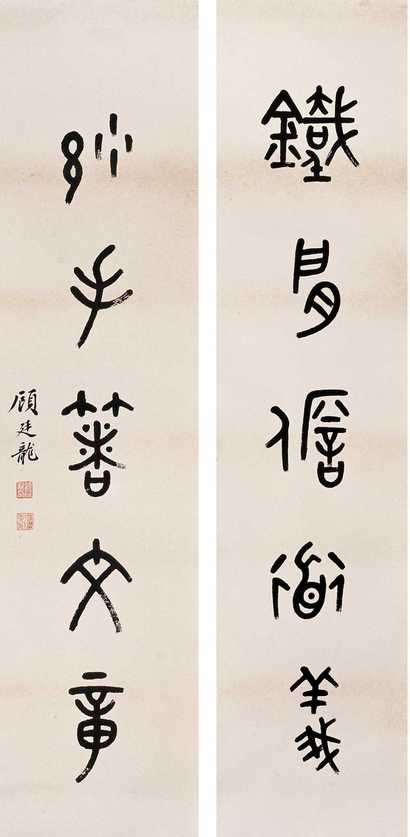 鐵肩儋道義
妙手箸文章
顧廷龍